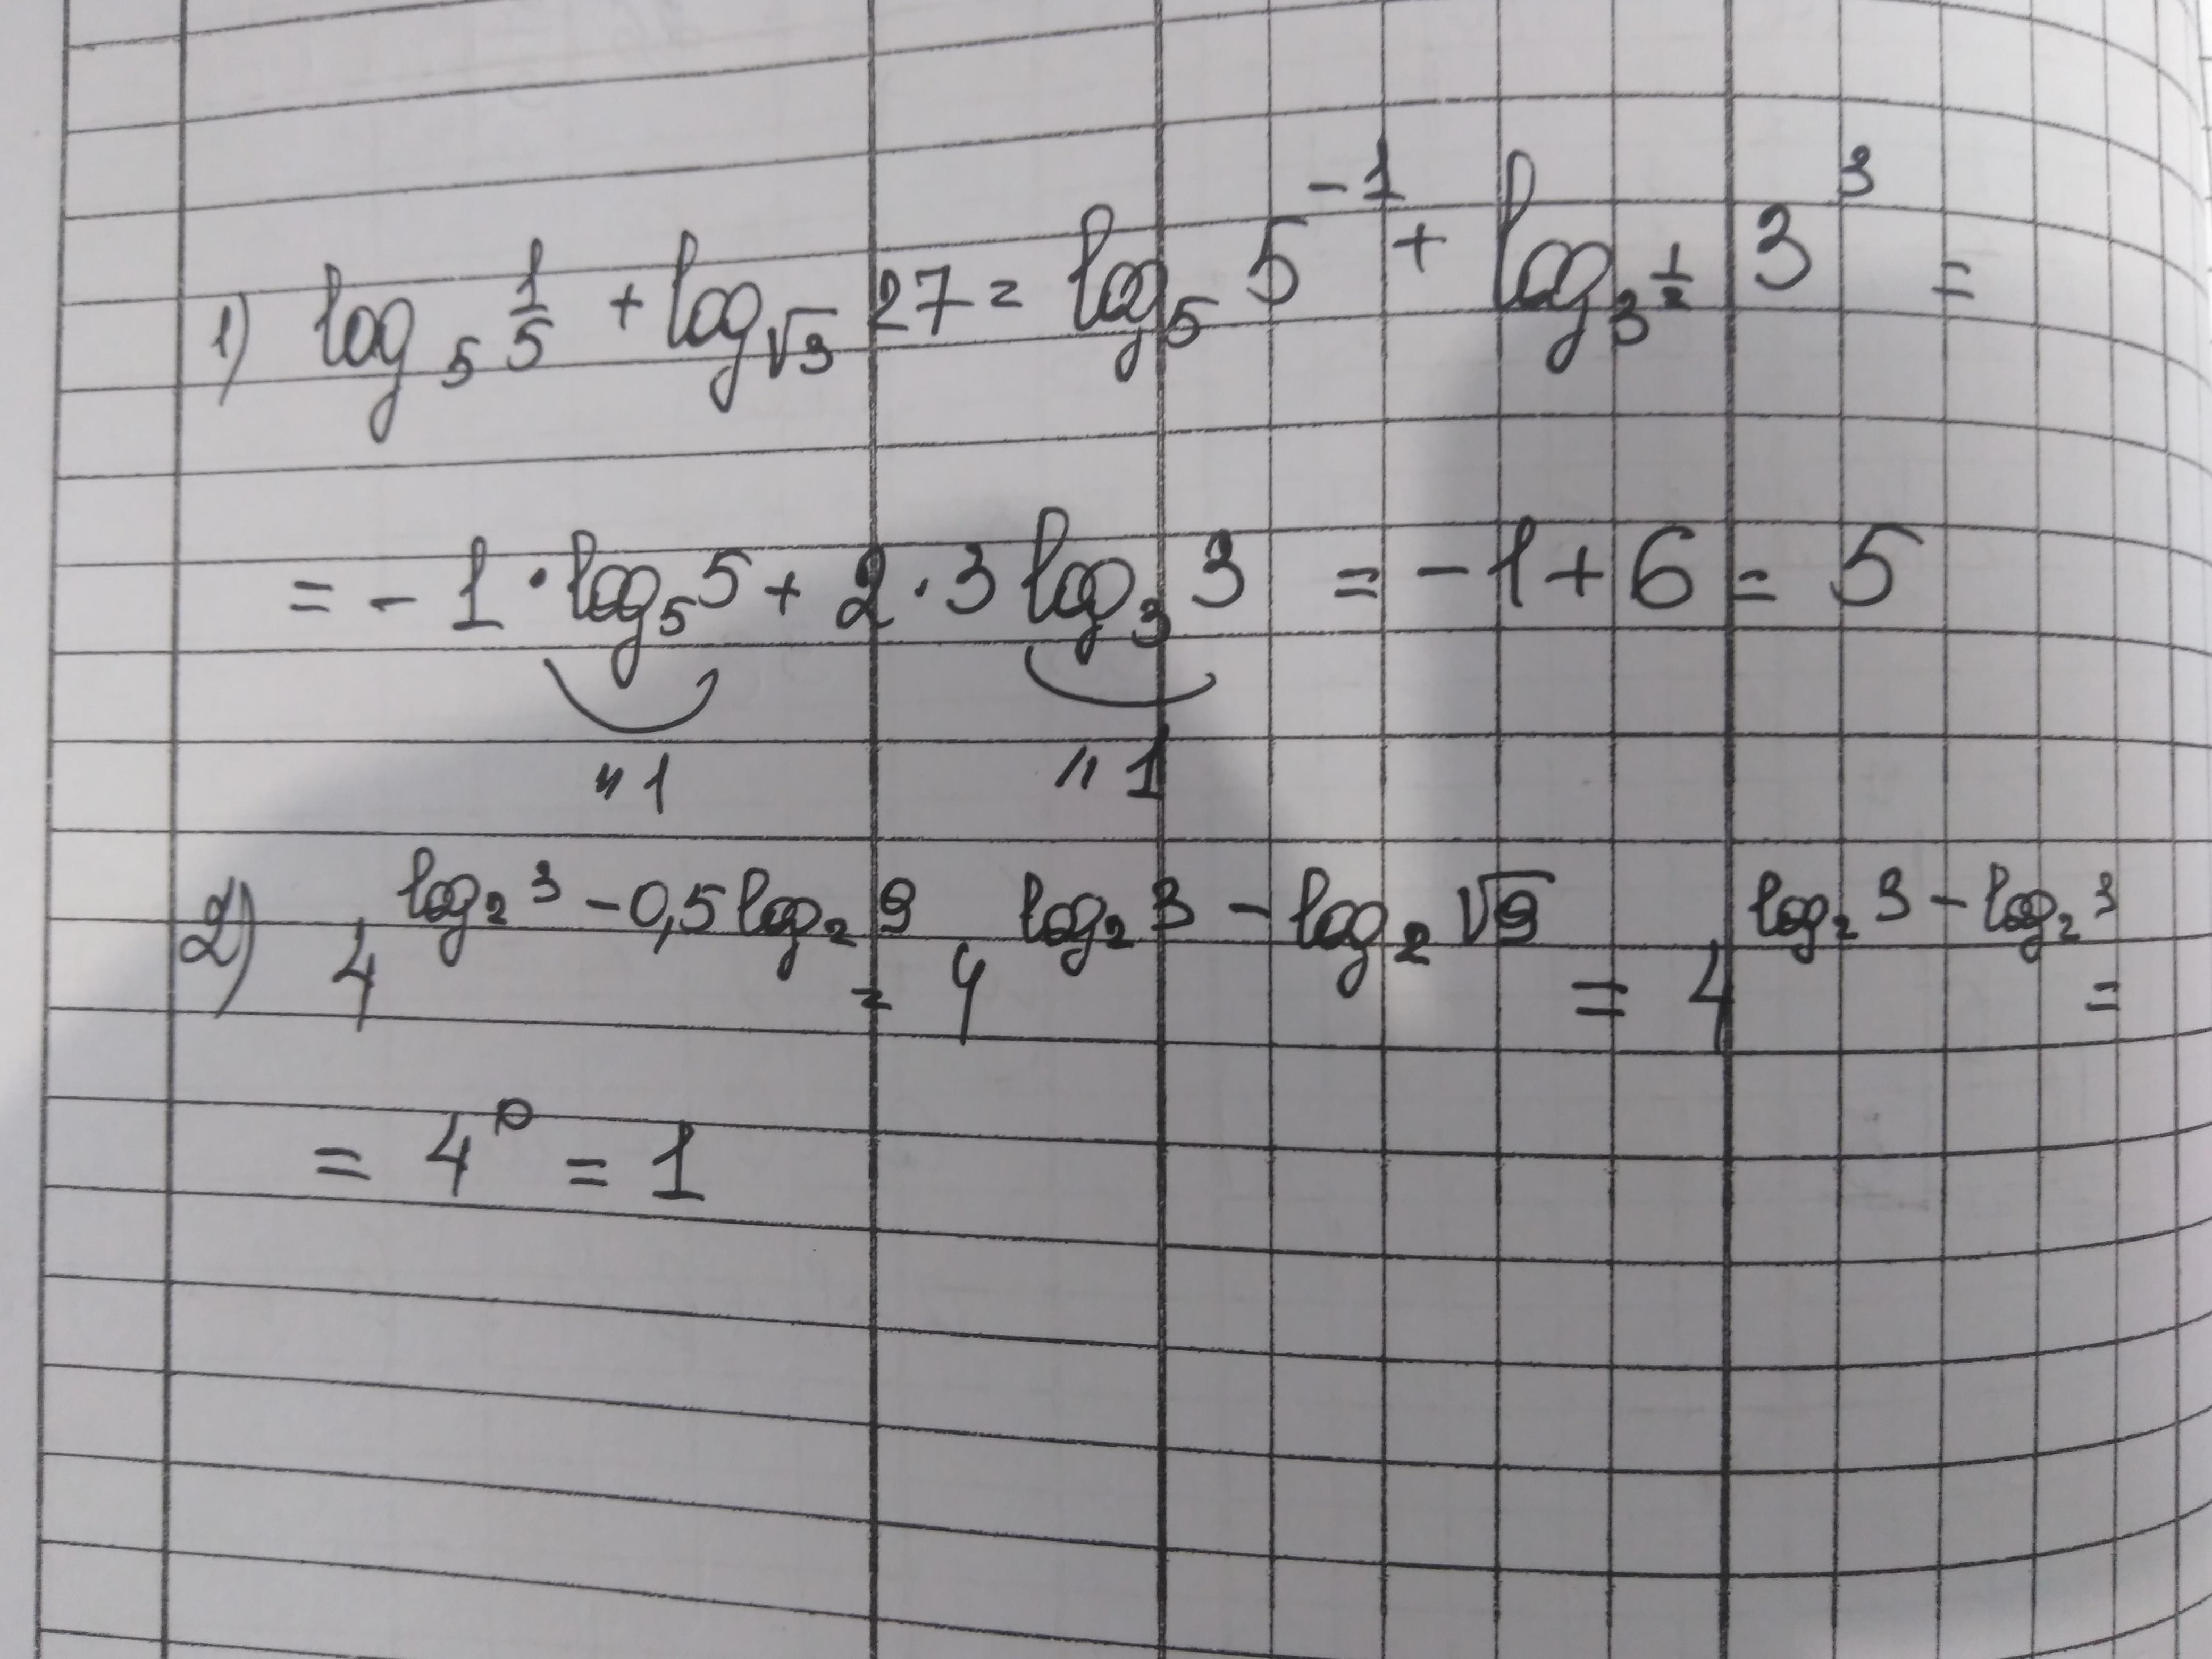 1) log₅ 1/5 + log_√3 27 = log₅ 5⁻¹ + log_3^(1/2) 3³ =
= -1 · log₅ 5 + 2 · 3 log₃ 3 = -1 + 6 = 5
"1 "1
2) 4^(log₂ 3 - 0,5 log₂ 9) = 4^(log₂ 3 - log₂ √9) = 4^(log₂ 3 - log₂ 3) =
= 4⁰ = 1